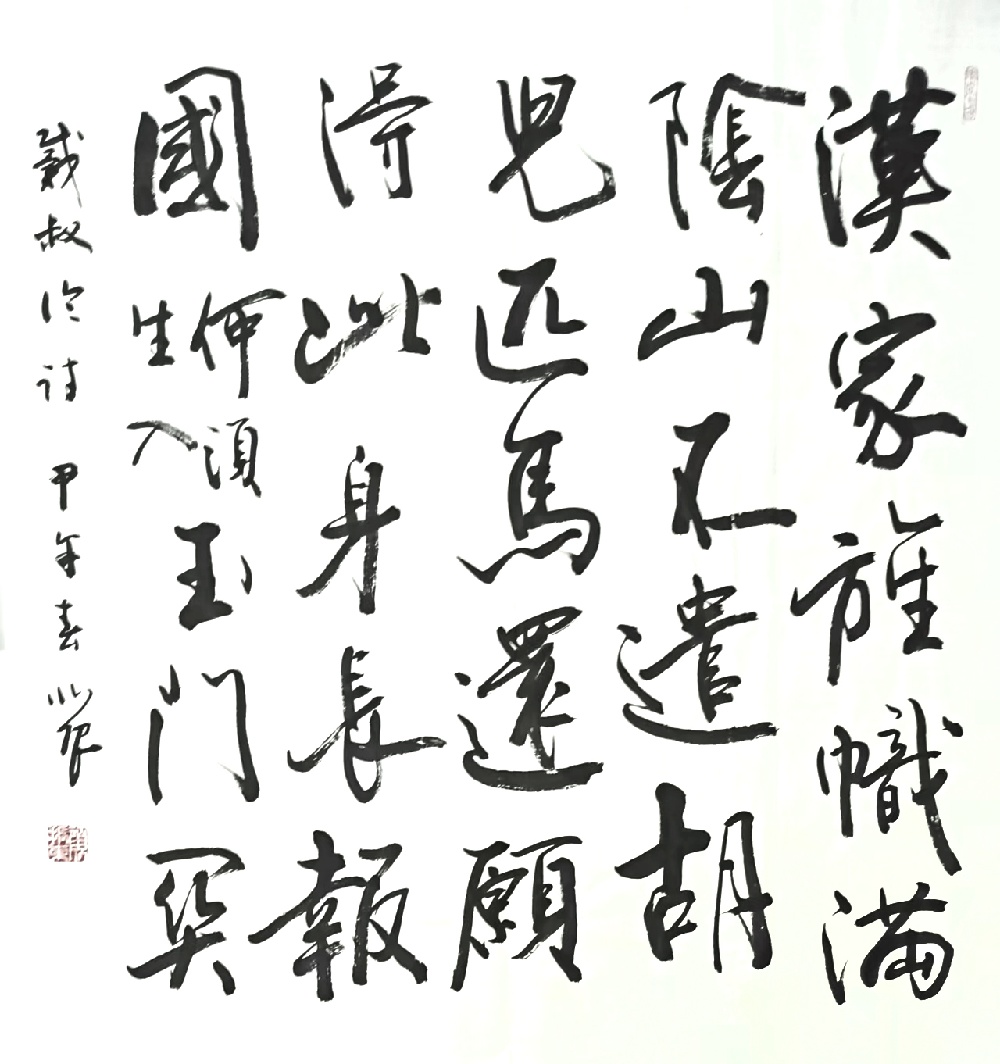 漢家旌幟滿
陰山不遣胡
兒匹馬還願
得此身長報
國何須生入玉門関
戴叔倫詩 甲午春